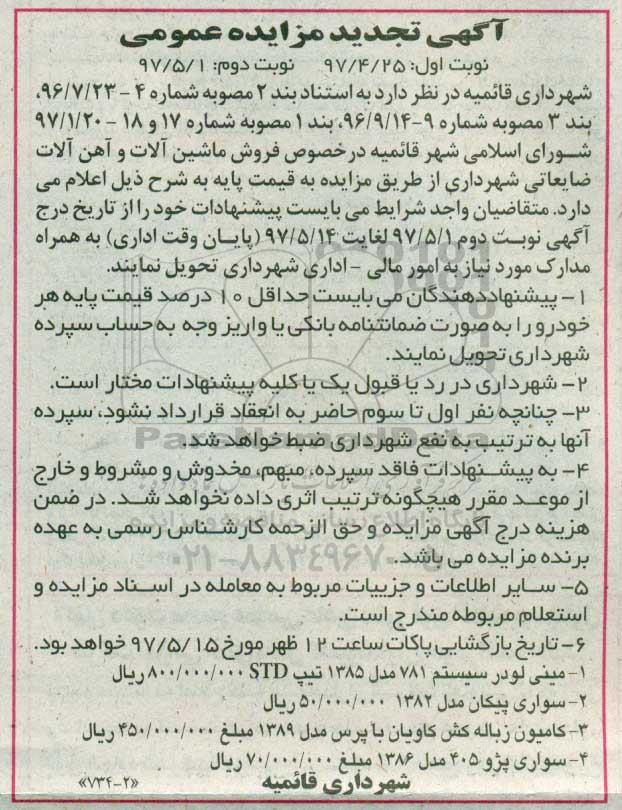 آگهی تجدید مزایده عمومی
نوبت اول: ۹۷/۴/۲۵ نوبت دوم: ۹۷/۵/۱
شهرداری قائمیه در نظر دارد به استناد بند ۲ مصوبه شماره ۴ - ۹۶/۷/۲۳،
بند ۳ مصوبه شماره ۹-۹۶/۹/۱۴، بند ۱ مصوبه شماره ۱۷ و ۱۸ - ۹۷/۱/۲۰
شورای اسلامی شهر قائمیه درخصوص فروش ماشین آلات و آهن آلات
ضایعاتی شهرداری از طریق مزایده به قیمت پایه به شرح ذیل اعلام می
دارد. متقاضیان واجد شرایط می بایست پیشنهادات خود را از تاریخ درج
آگهی نوبت دوم ۹۷/۵/۱ لغایت ۹۷/۵/۱۴ (پایان وقت اداری) به همراه
مدارک مورد نیاز به امور مالی - اداری شهرداری تحویل نمایند.
۱- پیشنهاددهندگان می بایست حداقل ۱۰ درصد قیمت پایه هر
خودرو را به صورت ضمانتنامه بانکی یا واریز وجه به حساب سپرده
شهرداری تحویل نمایند.
۲- شهرداری در رد یا قبول یک یا کلیه پیشنهادات مختار است.
۳- چنانچه نفر اول تا سوم حاضر به انعقاد قرارداد نشود، سپرده
آنها به ترتیب به نفع شهرداری ضبط خواهد شد.
۴- به پیشنهادات فاقد سپرده، مبهم، مخدوش و مشروط و خارج
از موعد مقرر هیچگونه ترتیب اثری داده نخواهد شد. در ضمن
هزینه درج آگهی مزایده و حق الزحمه کارشناس رسمی به عهده
برنده مزایده می باشد.
۵- سایر اطلاعات و جزییات مربوط به معامله در اسناد مزایده و
استعلام مربوطه مندرج است.
۶- تاریخ بازگشایی پاکات ساعت ۱۲ ظهر مورخ ۹۷/۵/۱۵ خواهد بود.
۱- مینی لودر سیستم ۷۸۱ مدل ۱۳۸۵ تیپ STD ۸۰۰/۰۰۰/۰۰۰ ریال
۲- سواری پیکان مدل ۱۳۸۲ ۵۰/۰۰۰/۰۰۰ ریال
۳- کامیون زباله کش کاویان با پرس مدل ۱۳۸۹ مبلغ ۴۵۰/۰۰۰/۰۰۰ ریال
۴- سواری پژو ۴۰۵ مدل ۱۳۸۶ مبلغ ۷۰/۰۰۰/۰۰۰ ریال
شهرداری قائمیه «۷۳۴-۲»
ParsNamadData
۰۲۱-۸۸۳۴۹۶۷۰